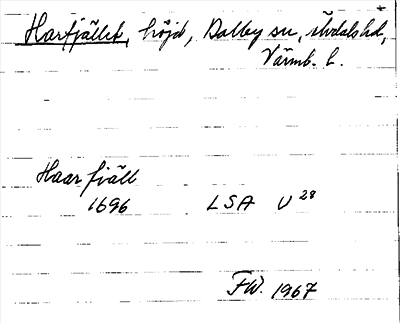 Harfjället, höjd, Dalby sn, Älvdals hd,
Värml. l.
Haar fiäll
1696 LSA U 28
FW. 1967